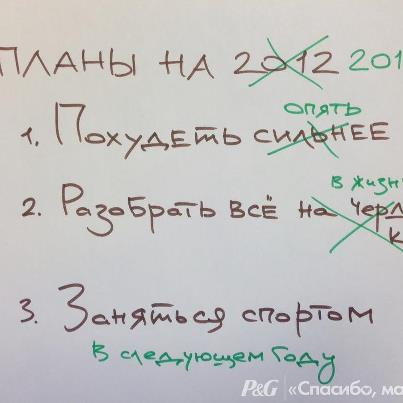 ПЛАНЫ НА 2012 201
опять
1. Похудеть сильнее
в жизн
2. Разобрать всё на черд
к
3. Заняться спортом
в следующем году
P&G «Спасибо, ма